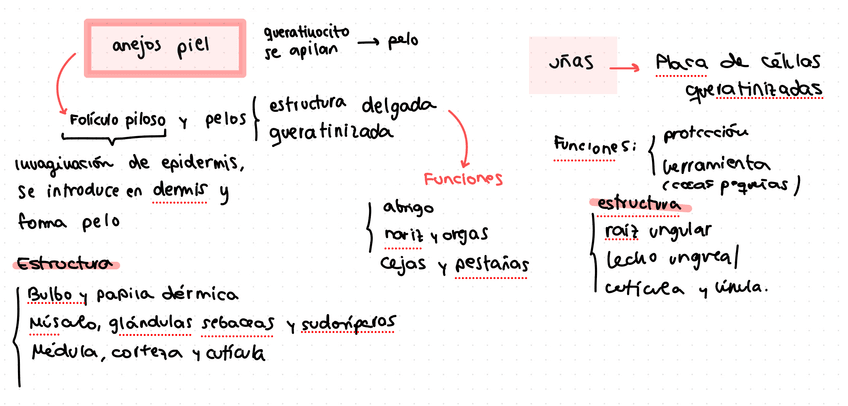 anejos piel
queratinocito
se apilan → pelo
Folículo piloso y pelos
estructura delgada
queratinizada
invaginación de epidermis,
se introduce en dermis y
forma pelo
Funciones
abrigo
nariz y orejas
cejas y pestañas
Estructura
Bulbo y papila dérmica
Músculo, glándulas sebaceas y sudoríparas
Médula, corteza y cutícula
uñas → Placa de células
queratinizadas
Funciones:
protección
herramienta
(cosas pequeñas)
estructura
raíz ungular
lecho ungueal
cutícula y lúnula.